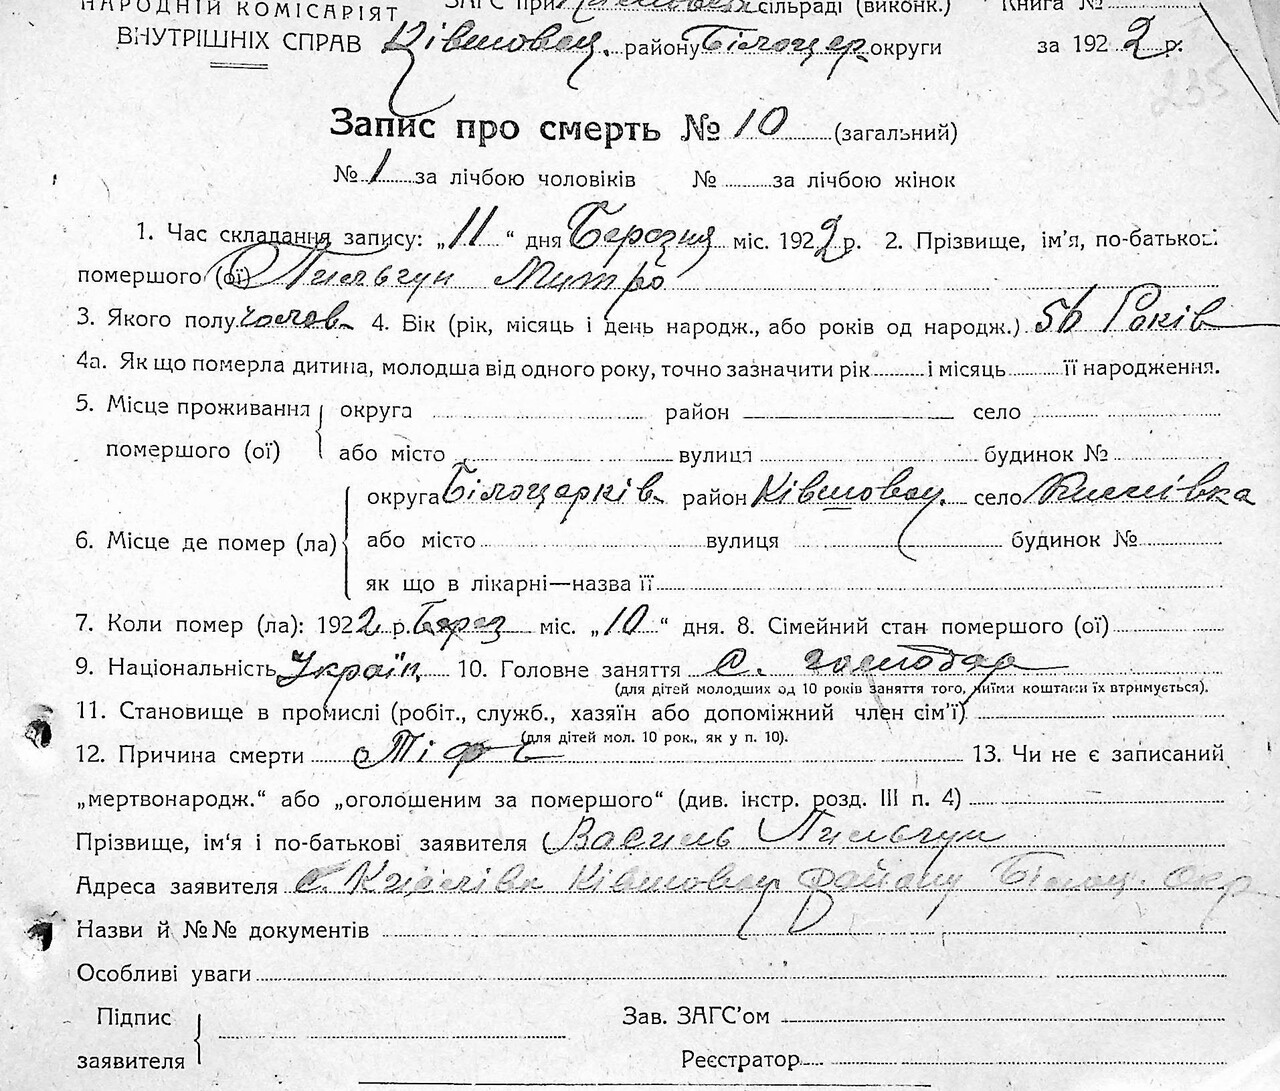 НАРОДНІЙ КОМІСАРІЯТ ЗАГС при сільраді (виконк.) Книга №
ВНУТРІШНІХ СПРАВ Ківшоват. району Білоцер. округи за 1922 р.
235
Запис про смерть № 10 (загальний)
№ 1 за лічбою чоловіків № за лічбою жінок
1. Час складання запису: „11“ дня Березня міс. 1922 р. 2. Прізвище, ім'я, по-батькові
помершого (ої) Пильгун Митро
3. Якого полу чолов. 4. Вік (рік, місяць і день народж., або років од народж.) 56 Років
4а. Як що померла дитина, молодша від одного року, точно зазначити рік і місяць її народження.
5. Місце проживання округа район село
помершого (ої) або місто вулиця будинок №
округа Білоцерків. район Ківшоват. село
6. Місце де помер (ла) або місто вулиця будинок №
як що в лікарні—назва її
7. Коли помер (ла): 1922 р. Берез міс. „10“ дня. 8. Сімейний стан помершого (ої)
9. Національність Україн. 10. Головне заняття С. господар
(для дітей молодших од 10 років заняття того, чиїми коштами їх втримується).
11. Становище в промислі (робіт., служб., хазяїн або допоміжний член сім'ї)
(для дітей мол. 10 рок., як у п. 10).
12. Причина смерти Тіф 13. Чи не є записаний
„мертвонародж.“ або „оголошеним за помершого“ (див. інстр. розд. III п. 4)
Прізвище, ім'я і по-батькові заявителя Василь Пильгун
Адреса заявителя с. Ківшоват. району Білоц. Окр
Назви й №№ документів
Особливі уваги
Підпис Зав. ЗАГС'ом
заявителя Реєстратор